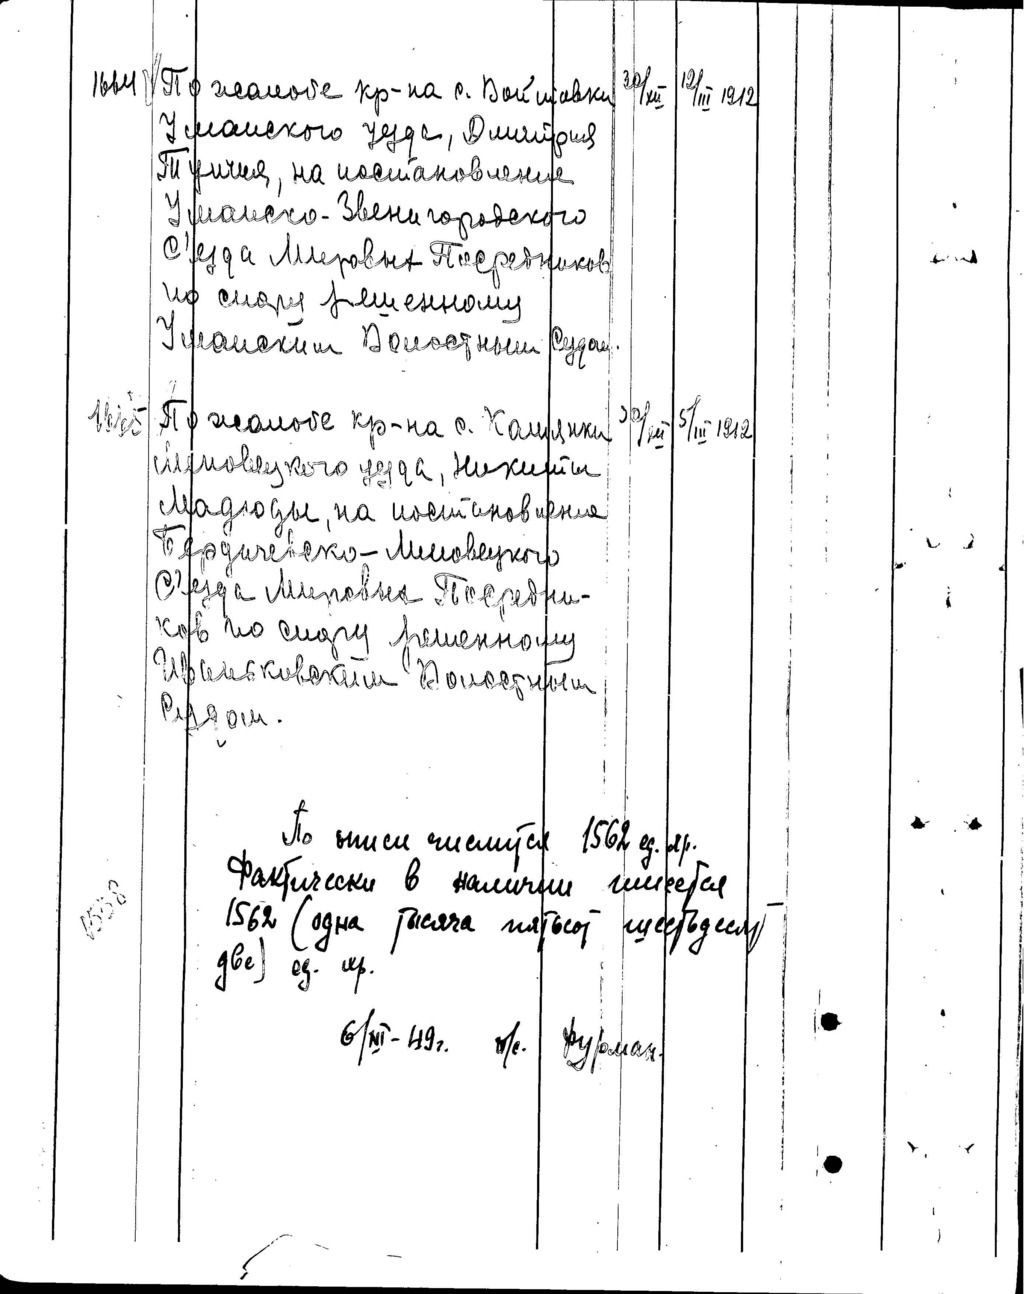 1664 По жалобе кр-на с. Войтовки 30/XII 12/III 1912
Уманского уезда, Дмитрия
на постановление
Уманско-Звенигородского
С'езда Мировых Посредников
по спору решенному
Уманским Волостным Судом.
1665 По жалобе кр-на с. 30/XII 5/III 1912
Липовецкого уезда, Никиты
Мадюды, на постановление
Бердичевско-Липовецкого
С'езда Мировых Посредни-
ков по спору решенному
Волостным
Судом.
По описи числится 1562 ед. хр.
Фактически в наличии имеется
1562 (одна тысяча пятьсот шестьдесят
две) ед. хр.
6/XI-49г. Фурман.